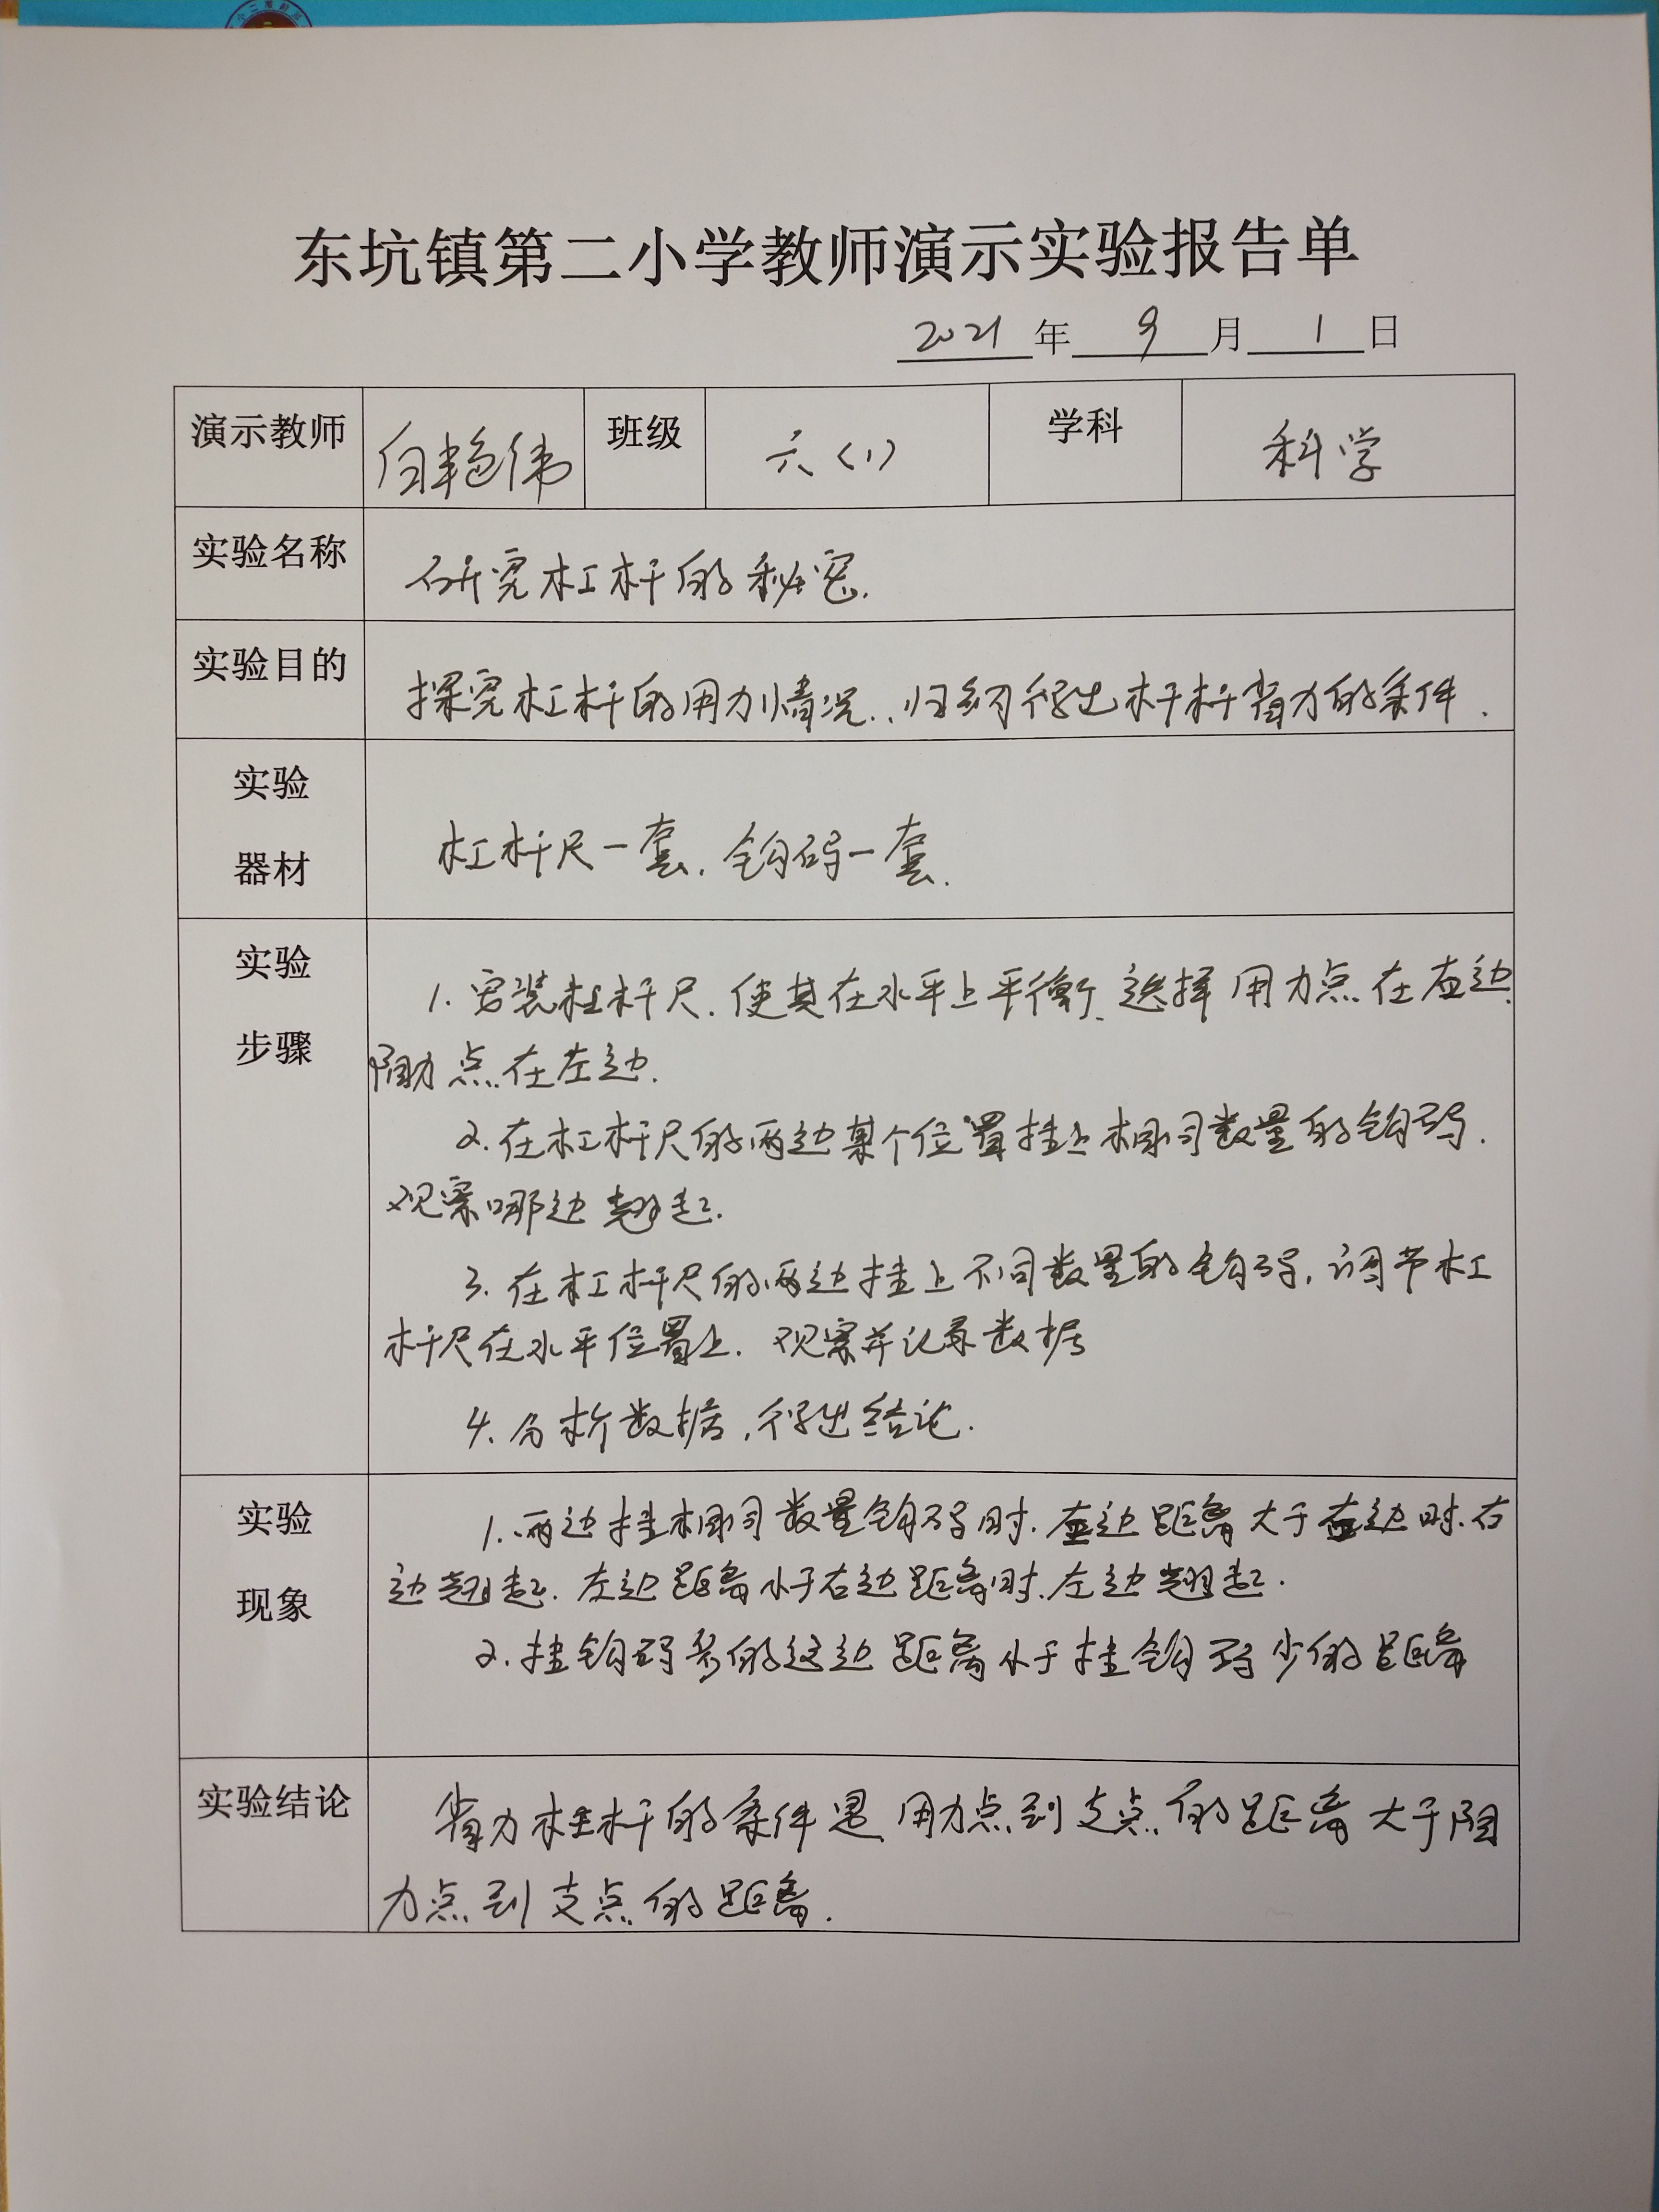 东坑镇第二小学教师演示实验报告单
2021年 9 月 1 日
演示教师 白艳伟 班级 六(1) 学科 科学
实验名称 研究杠杆的秘密.
实验目的 探究杠杆的用力情况.归纳得出杆杆省力的条件.
实验
器材
杠杆尺一套.钩码一套.
实验
步骤
1.安装杠杆尺.使其在水平上平衡.选择用力点在右边.
阻力点在左边.
2.在杠杆尺的两边某个位置挂上相同数量的钩码.
观察哪边翘起.
3.在杠杆尺的两边挂上不同数量的钩码,调节杠
杆尺在水平位置上.观察并记录数据
4.分析数据,得出结论.
实验
现象
1.两边挂相同数量钩码时.左边距离大于右边时.右
边翘起.左边距离小于右边距离时.左边翘起.
2.挂钩码多的这边距离小于挂钩码少的距离
实验结论 省力杠杆的条件是用力点到支点的距离大于阻
力点到支点的距离.